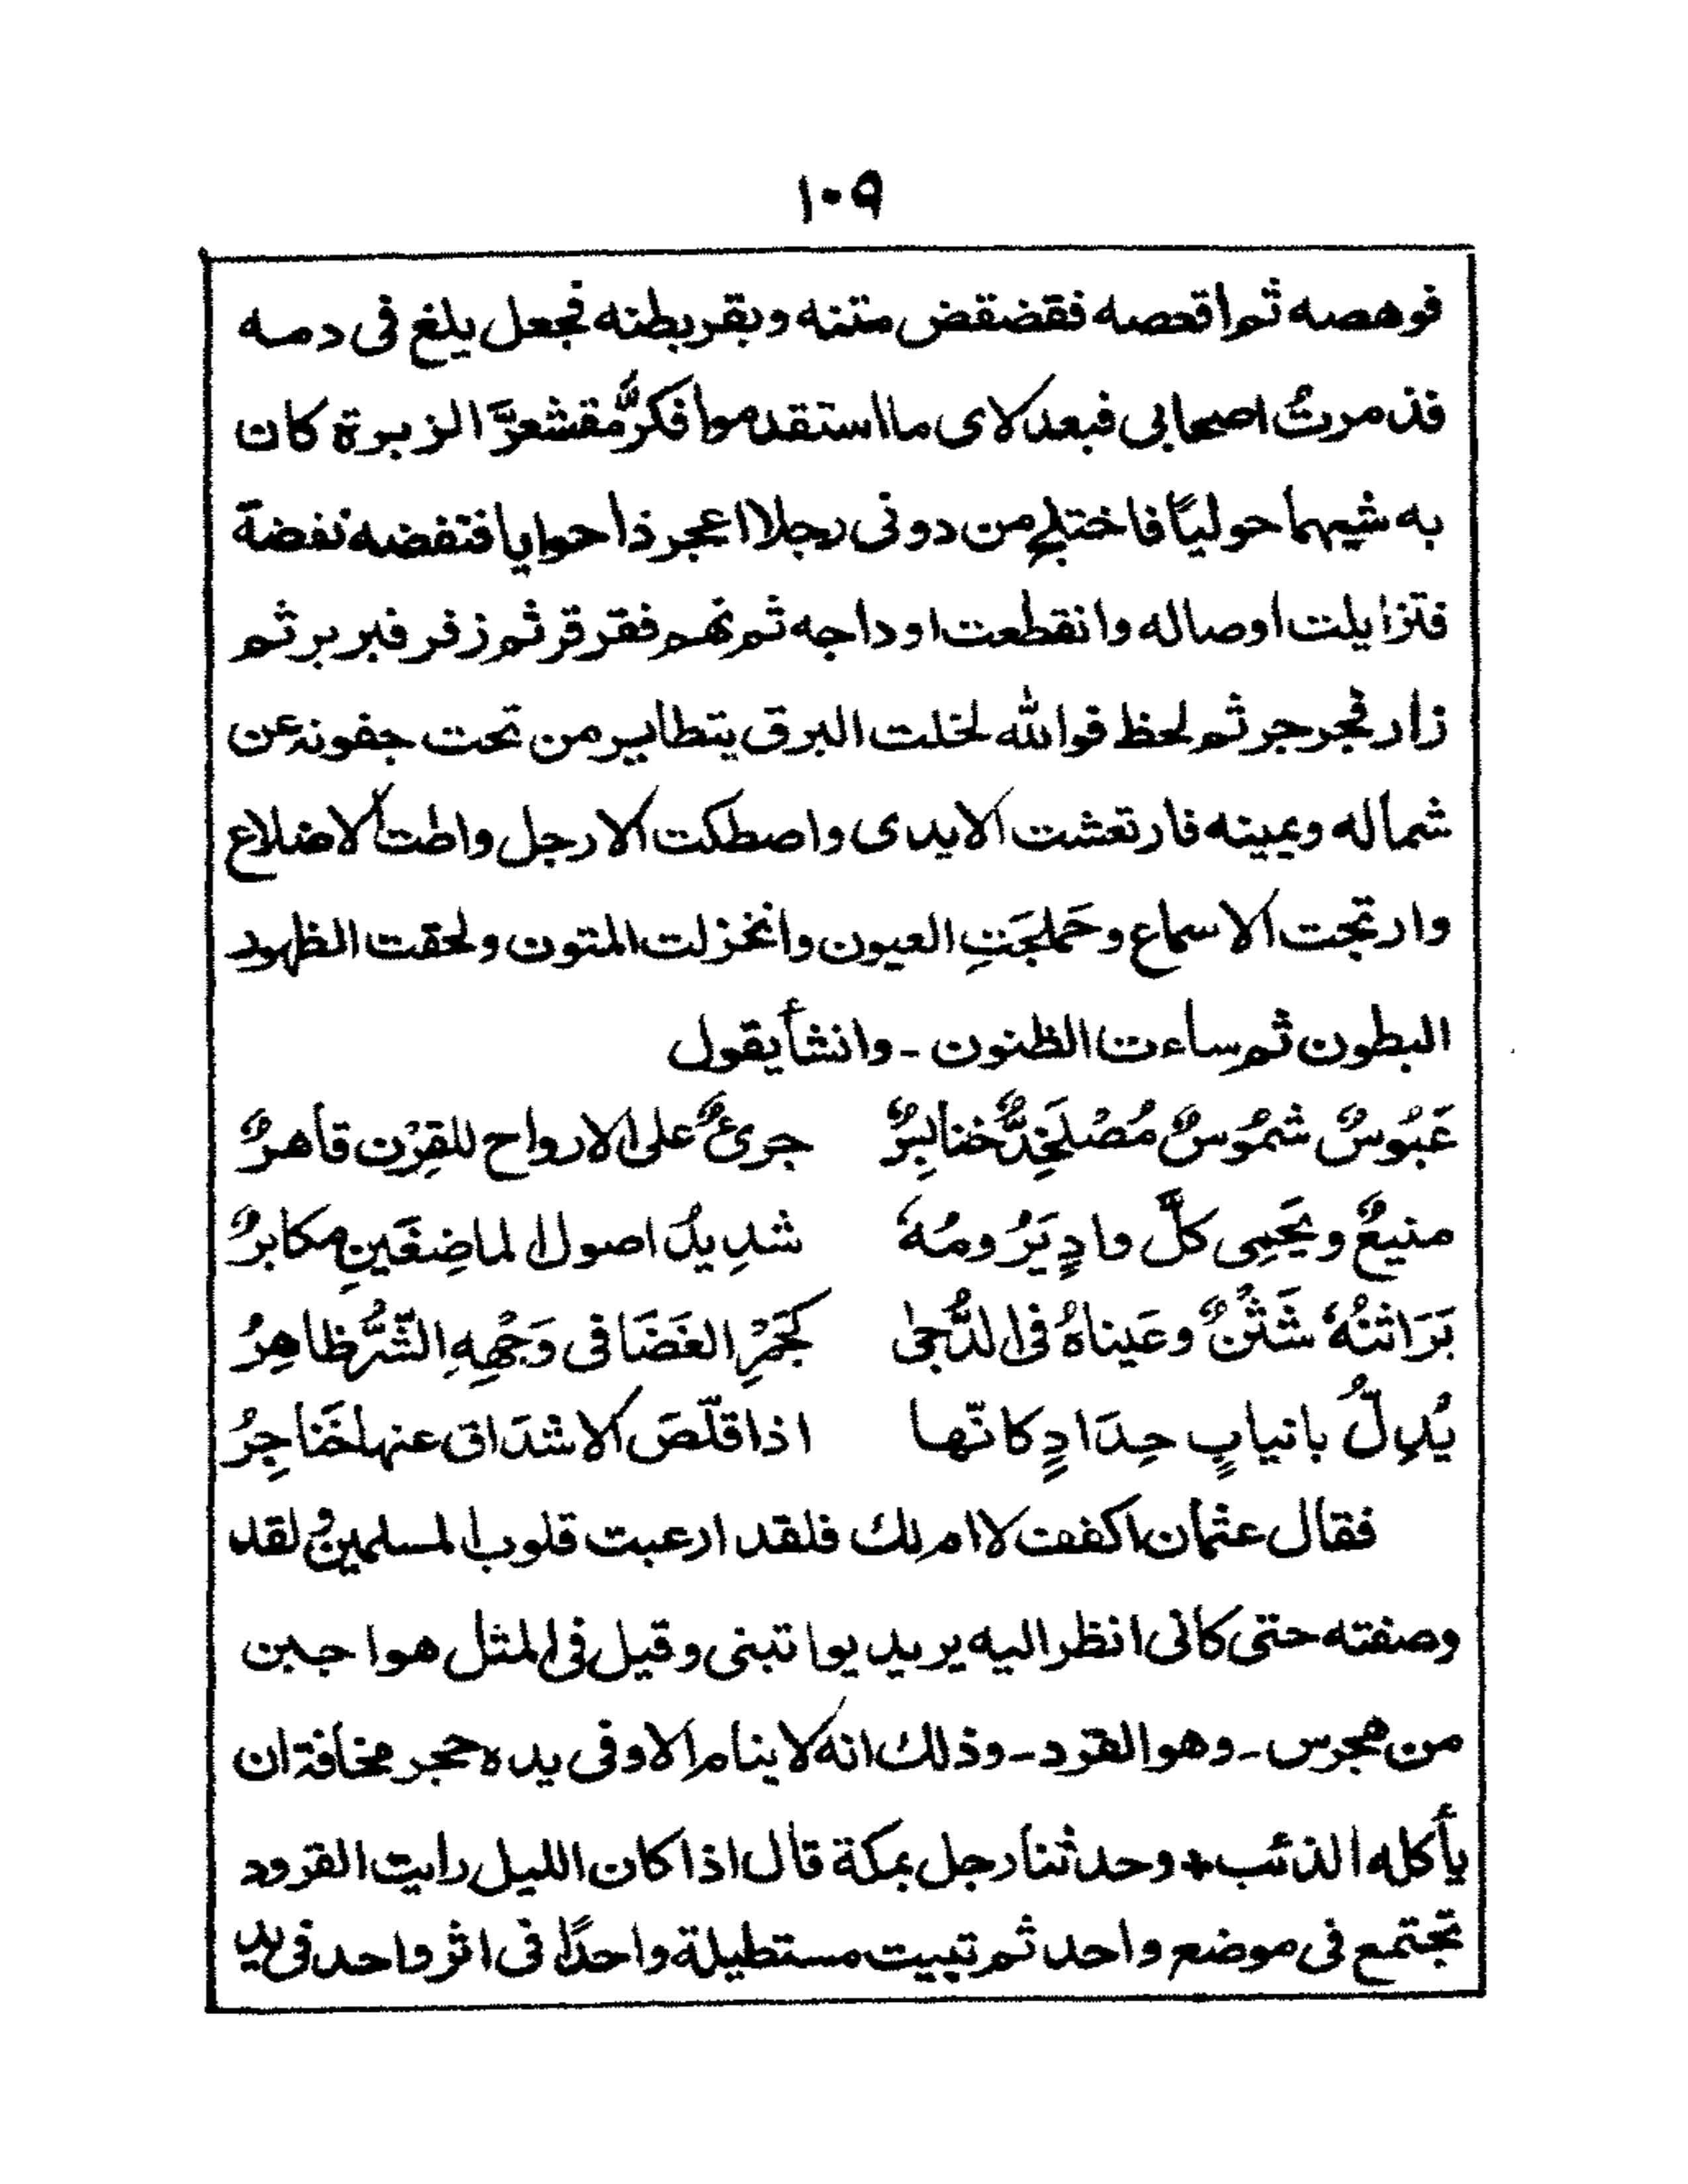 ١٠٩
فوهصه ثم اقعصه فقضقض متنه وبقر بطنه فجعل يلغ فى دمه
فذمرتُ اصحابى فبعد لاى ما استقدموا فكرَّ مقشعرَّ الزبرة كان
به شيهما حوليًا فاختلج من دونى رجلا اعجر ذا حوايا فنفضه نفضة
فتزايلت اوصاله وانقطعت اوداجه ثم نهم فقرقر ثم زفر فبربر ثم
زار فجرجر ثم لحظ فوالله لخلت البرق يتطاير من تحت جفونه عن
شماله ويمينه فارتعشت الايدى واصطكت الارجل واطت الاضلاع
وارتجت الاسماع وحَملجَتِ العيون وانخزلت المتون ولحقت الظهور
البطون ثم ساءت الظنون - وانشأ يقول
عَبُوسٌ شمُوسٌ مُصْلَخِدٌّ خنابِرٌ جرىءٌ على الارواح للقِرْن قاهرٌ
منيعٌ ويَحْمِى كلَّ وادٍ يَرُومُهُ شدِيدُ اصول الماضِغَينِ مكابرٌ
بَرَاثنُهُ شَثْنٌ وعَيناهُ فى الدُّجى كجَمْرِ الغَضَا فى وَجْهِهِ الشَّرُّ ظاهِرُ
يُدِلُّ بانيابٍ حِدَادٍ كانّها اذا قلّصَ الاشدَاق عنها خَناجِرُ
فقال عثمان اكفف لا ام لك فلقد ارعبت قلوب المسلمين لقد
وصفته حتى كانى انظر اليه يريد يواتبنى وقيل فى المثل هو اجبن
من هجرس - وهو القرد - وذلك انه لا ينام الا وفى يده حجر مخافة ان
يأكله الذئب + وحدثنا رجل بمكة قال اذا كان الليل رايت القرود
تجتمع فى موضع واحد ثم تبيت مستطيلة واحدًا فى اثر واحد فى يد